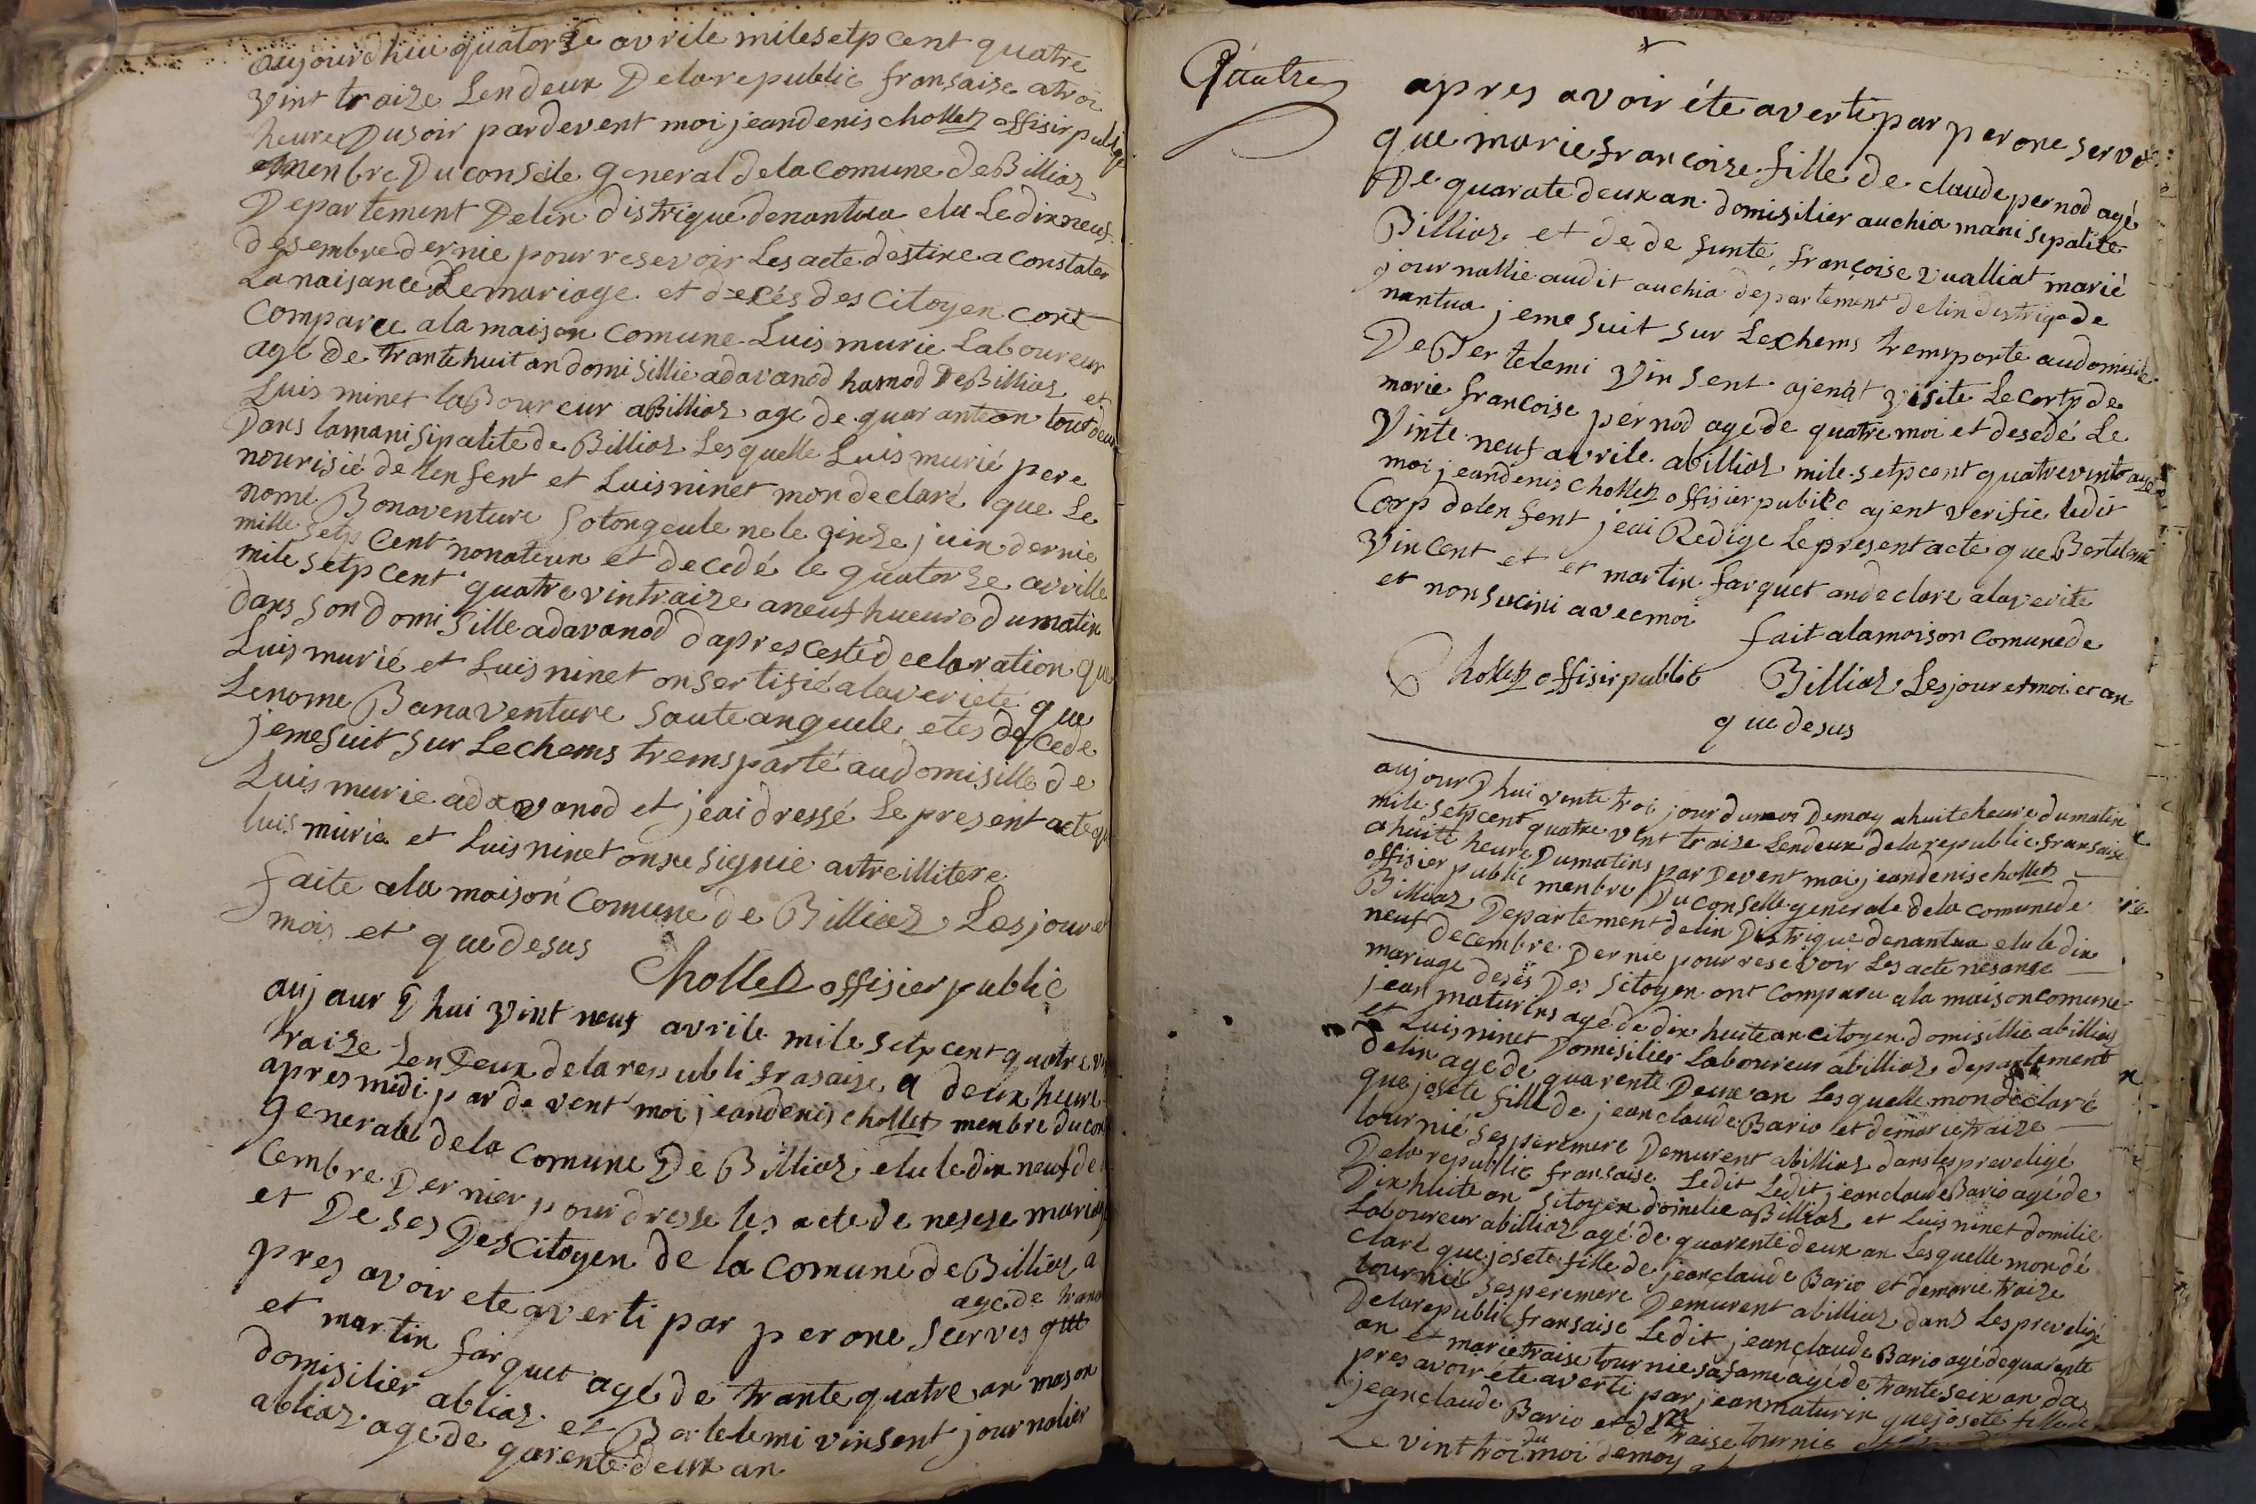 aujourdhui quatorze avrile milesetpcent quatre
vint traize Lendeux Delarepublic fransaise atroi
heure Dusoir pardevent moi jeandenis chollet offisir pulige
menbre Du conseile general dela comune deBillias
Departement Delin distrique denantua elu Le dixneuf
desembre dernie pour resevoir Les acte destine a constater
La naisance Le mariage et decés des Citoyen cont
Comparu a la maison comune Luis murie Laboureur
agé de trante huit an domisillie adavanod hamod DeBillias et
Luis minet laboureur aBillias age de quaranteon tout deux
Dans lamanisipalite de Billias Lesquelle Luis murié pere
nourisié de lenfent et Luis ninet mon declaré que Le
nomé Bonaventure Sotongeule ne le qinze juin dernie
mille setp cent nonateun et decedé le quatorze avrille
mile setpcent quatre vintraize aneuf hueure dumatin
dans son domisille adavanod dapres ceste declaration que
Luis murié et Luis ninet onsertifié alaverieté que
Lenome Bonaventure Sauteangeule etes decede
jemesuit sur Lechems tremsparté audomisille de
Luis murie adavanod et jeai dressé Le present acte que
luis murie et Luis ninet onsu signie autre illitere
faite ala maison comune de Billias Les jour et
mois et que desus Chollet offisier public
aujaurdhui vint neuf avrile mile setpcent quatre vin
traize Len Deux delarepubli frasaise a deux heure
apres midi par devent moi jeandenis chollet menbre du con
generale dela comune De Billias elu le dix neuf de
cembre Dernier pour dresse les acte de nesese mariage
et De ses Des citoyen de la comune de Billias a
pres avoir ete averti par perone Serves
agede trane
et martin farquet agé de trante quatre an mason
domisilier abliaz et Bertelemi vinsent journalier
abliaz age de qarente deux an
Quatre
apres avoir éte averti par perone serve
que marie francoize fille de claude pernod agé
De quarate deux an domisilier auchia manisepalite
Billias et de defunte françoise vualliat marié
journallie audit auchia departement delin distrige de
nantua jeme suit sur Lechems tremsporte audomisile
De Bertelemi vinsent ajent visite Le cortp de
marie francoise pernod age de quatre moi et desedé Le
vinte neuf avrile abillias mile setpcent quatrevint
moi jeandenis chollet offisier public ajent verifie ledit
Corp delenfent jeai Redige Le present acte que Bertelemi
vincent et et martin farquet andeclare alaverite
et nonsucini avec moi
fait alamoison comune de
Chollet offisir publit Billias Les jour et moi et an
que desus
aujourdhui vente troi jour dumoi Demay ahuiteheure dumatin
mile setpcent quatre vint traize Lendeux dela republic fransaise
a huite heure Dumatins par Devent moi jeandenis chollet
offisier public menbre Du conselle generale dela comune de
Billias Departement delin Distrique denantua elu le dix
neuf decembre Dernie pour resevoir Les acte nesanse
mariage desés Des Sitoyen ont comparu ala maison comune
jean maturins age de dix huite an citoyen domisillie abillias
et Luis ninet Domisilier Laboureur abillias departement
delin age de quarente Deux an Lesquelle mon declaré
que josete fille de jean claude Bario et demarie traize
tournié ses peremere Demurent abillias dans les prevelige
Dela republic fransaise Ledit Ledit jean claude Bario agé de
Dix huite an Sitoyen domelie aBillias et Luis ninet domilie
Laboureur abillias agé de quarente deux an Lesquelle mon dé
claré que josete fille de jean claude Bario et demarie traize
tournié ses peremere Demurent abillias dans Les prevelige
Dela republic fransaise Ledit jean claude Bario agé de quarente
an et marie traise tournie sa fame agé de trante seix an da
pres avoir éte averti par jean maturin que josete fille de
jean claude Bario et de traise tournie
Le vint troi du moi demay